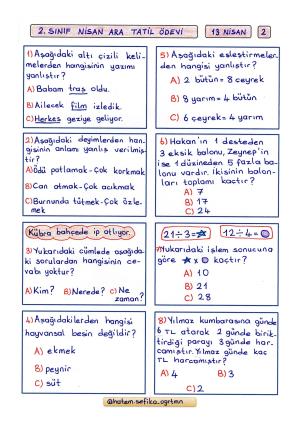 2. SINIF NİSAN ARA TATİL ÖDEVİ
13 NİSAN
2
1) Aşağıdaki altı çizili keli-
melerden hangisinin yazımı
yanlıştır?
A) Babam traş oldu.
B) Ailecek film izledik.
C) Herkes geziye geliyor.
2) Aşağıdaki deyimlerden han-
gisinin anlamı yanlış verilmiş-
tir?
A) Ödü patlamak-Çok korkmak
B) Can atmak-Çok acıkmak
C) Burnunda tütmek-Çok özle-
mek
Kübra bahçede ip atlıyor.
3) Yukarıdaki cümlede aşağıda-
ki sorulardan hangisinin ce-
vabı yoktur?
A) Kim? B) Nerede? C) Ne
zaman?
4) Aşağıdakilerden hangisi
hayvansal besin değildir?
A) ekmek
B) peynir
C) süt
5) Aşağıdaki eşleştirmeler-
den hangisi yanlıştır?
A) 2 bütün = 8 çeyrek
B) 8 yarım = 4 bütün
C) 6 çeyrek = 4 yarım
6) Hakan'ın 1 desteden
3 eksik balonu, Zeynep'in
ise 1 düzineden 5 fazla ba-
lonu vardır. İkisinin balon-
ları toplamı kaçtır?
A) 7
B) 17
C) 24
21÷3=★ 12÷4=●
7) Yukarıdaki işlem sonucuna
göre ★ x ● kaçtır?
A) 10
B) 21
C) 28
8) Yılmaz kumbarasına günde
6 TL atarak 2 günde birik-
tirdiği parayı 3 günde har-
camıştır. Yılmaz günde kaç
TL harcamıştır?
A) 4 B) 3
C) 2
@hatem.sefika_ogrtmn